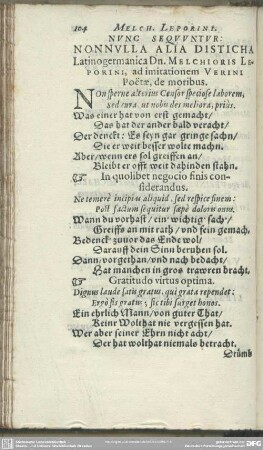 104 MELCH. LEPORINI.
NUNC SEQVVNTVR:
NONNVLLA ALIA DISTICHA
Latinogermanica Dn. MELCHIORIS LE-
PORINI, ad imitationem VERINI
Poëtæ, de moribus.
NOn sperne alterius Censor speciose laborem,
Sed cura, ut nobis des meliora, prius.
Was einer hat von erst gemacht/
Das hat der ander bald veracht/
Der denckt: Es seyn gar gringe sachn/
Die er weit besser wolte machn.
Aber/wenn ers sol greiffen an/
Bleibt er offt weit dahinden stahn.
In quolibet negocio finis con-
siderandus.
Ne temerè incipias aliquid, sed respice finem:
Post factum sequitur sæpè dolorus onus.
Wann du vorhast/ ein wichtig sach/
Greiffs an mit rath/ vnd sein gemach,
Bedenck zuuor das Ende wol/
Darauff dein Sinn beruhen sol.
Dann/vorgethan/vnd nach bedacht/
Hat manchen in gros trawren bracht.
Gratitudo virtus optima.
Dignus laude satis gratus, qui grata rependet:
Ergò sis gratus; sic tibi surget honos.
Ein ehrlich Mann/von guter That/
Keinr Wolthat nie vergessen hat.
Wer aber seiner Ehrn nicht acht/
Der hat wolthat niemals betracht.
Drümb